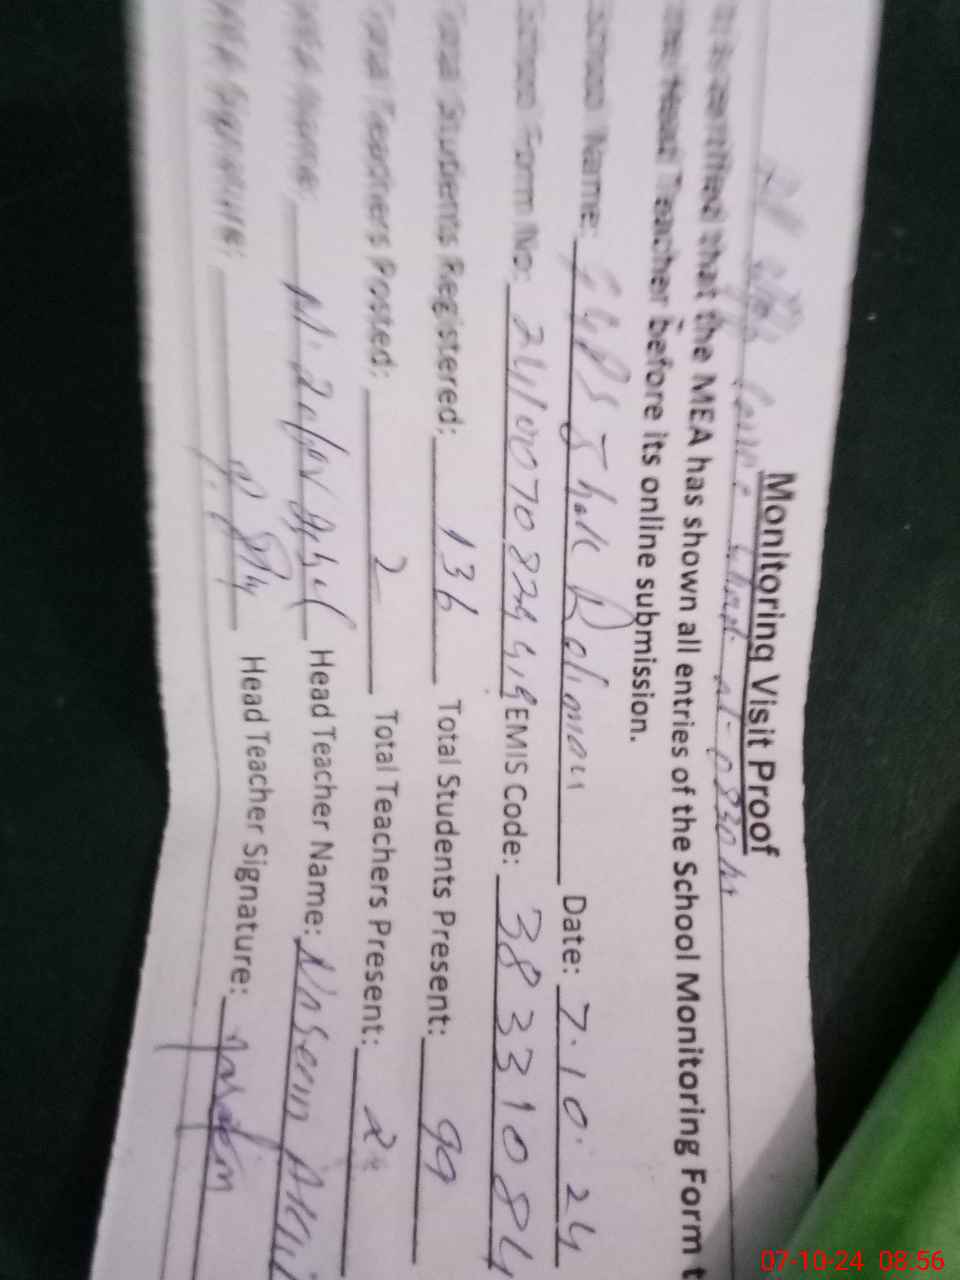 Monitoring Visit Proof
at 0830 hr
It is certified that the MEA has shown all entries of the School Monitoring Form t
the Head Teacher before its online submission.
School Name: GGPS Jhok Rahman Date: 7.10.24
School Form No: EMIS Code: 38331084
Total Students Registered: 136 Total Students Present: 99
Total Teachers Posted: 2 Total Teachers Present: 2
MEA Name: Head Teacher Name: Naseem
MEA Signature: Head Teacher Signature:
07-10-24 08:56